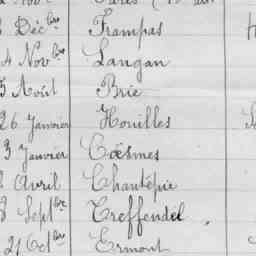 Déc bre Trampas
4 Nov bre Langan
5 Août Brie
26 Janvier Houilles
3 Janvier Coësmes
Avril Chantepie
8 Sept bre Treffendel
21 Oct bre Ermont